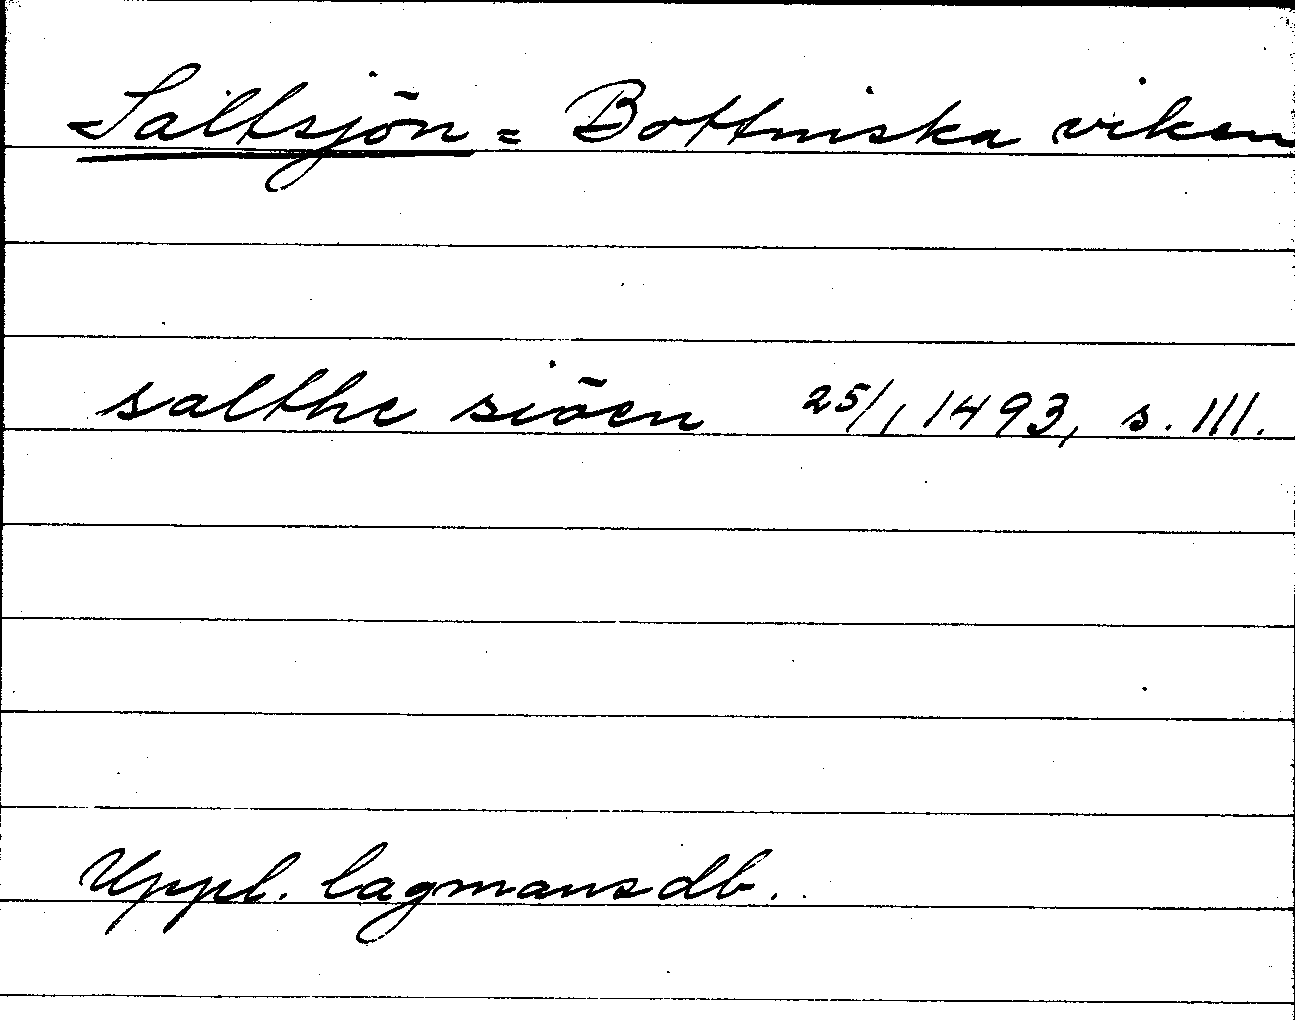 Saltsjön = Bottniska viken
salthe siöen 25/1 1493, s. 111.
Uppl. lagmansdb.